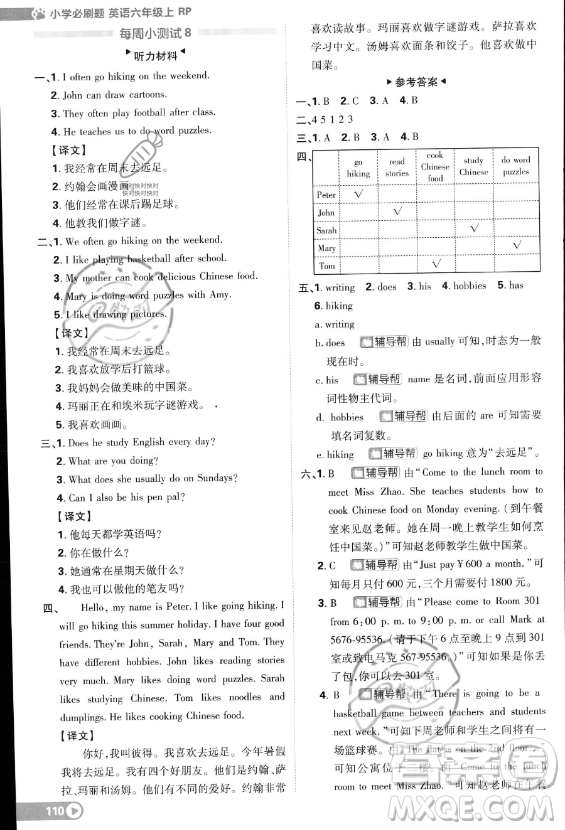 小学必刷题 英语六年级上 RP
每周小测试 8
听力材料
一、1. I often go hiking on the weekend.
2. John can draw cartoons.
3. They often play football after class.
4. He teaches us to do word puzzles.
【译文】
1. 我经常在周末去远足。
2. 约翰会画漫画。
3. 他们经常在课后踢足球。
4. 他教我们做字谜。
二、1. We often go hiking on the weekend.
2. I like playing basketball after school.
3. My mother can cook delicious Chinese food.
4. Mary is doing word puzzles with Amy.
5. I like drawing pictures.
【译文】
1. 我经常在周末去远足。
2. 我喜欢放学后打篮球。
3. 我妈妈会做美味的中国菜。
4. 玛丽正在和埃米玩字谜游戏。
5. 我喜欢画画。
三、1. Does he study English every day?
2. What are you doing?
3. What does she usually do on Sundays?
4. Can I also be his pen pal?
【译文】
1. 他每天都学英语吗?
2. 你正在做什么?
3. 她通常在星期天做什么?
4. 我也可以做他的笔友吗?
四、 Hello, my name is Peter. I like going hiking. I
will go hiking this summer holiday. I have four good
friends. They are John, Sarah, Mary and Tom. They
have different hobbies. John likes reading stories
very much. Mary likes doing word puzzles. Sarah
likes studying Chinese. Tom likes noodles and
dumplings. He likes cooking Chinese food.
【译文】
你好,我叫彼得。我喜欢去远足。今年暑
假我将去远足。我有四个好朋友。他们是约翰、萨
拉、玛丽和汤姆。他们有不同的爱好。约翰非常
110
喜欢读故事。玛丽喜欢玩字谜游戏。萨拉喜欢
学习中文。汤姆喜欢面条和饺子。他喜欢做中
国菜。
参考答案
一、1. B 2. C 3. A 4. B
二、4 5 1 2 3
三、1. B 2. A 3. A 4. B
四、
go hiking read stories cook Chinese food study Chinese do word puzzles
Peter √
John √
Sarah √
Mary √
Tom √
五、1. writing 2. does 3. his 4. hobbies 5. has
6. hiking
a. writing
b. does 辅导帮 由 usually 可知,时态为一般
现在时。
c. his 辅导帮 name 是名词,前面应用形容
词性物主代词。
d. hobbies 辅导帮 由后面的 are 可知,需要
填名词复数。
e. hiking 辅导帮 go hiking 意为“去远足”。
六、1. B 辅导帮 由“Come to the lunch room to
meet Miss Zhao. She teaches students how to
cook Chinese food on Monday evening. (到午餐
室来见赵老师。她在周一晚上教学生们如何烹
饪中国菜。)”可知赵老师教学生做中国菜。
2. B 辅导帮 由“Just pay ¥600 a month.”可
知,每月 600 元,三个月需要支付 1800 元。
3. B 辅导帮 由“Please come to Room 301
from 6:00 p.m. to 9:00 p.m. or call Mark at
5676-95536. (请于下午 6 点至晚上 9 点到 301
室或致电马克 5676-95536。)”可知,如果你丢
了包,你可以去 301 室。
4. B 辅导帮 由“There is going to be a
basketball game between teachers and
students.”可知下周老师和学生之间将有一
场篮球赛。
5.